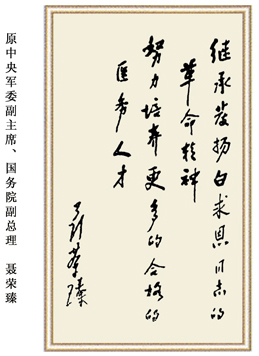 继承發扬白求恩同志的
革命精神
努力培养更多的合格的
医务人才
聂荣臻
原中央军委副主席、国务院副总理 聂荣臻